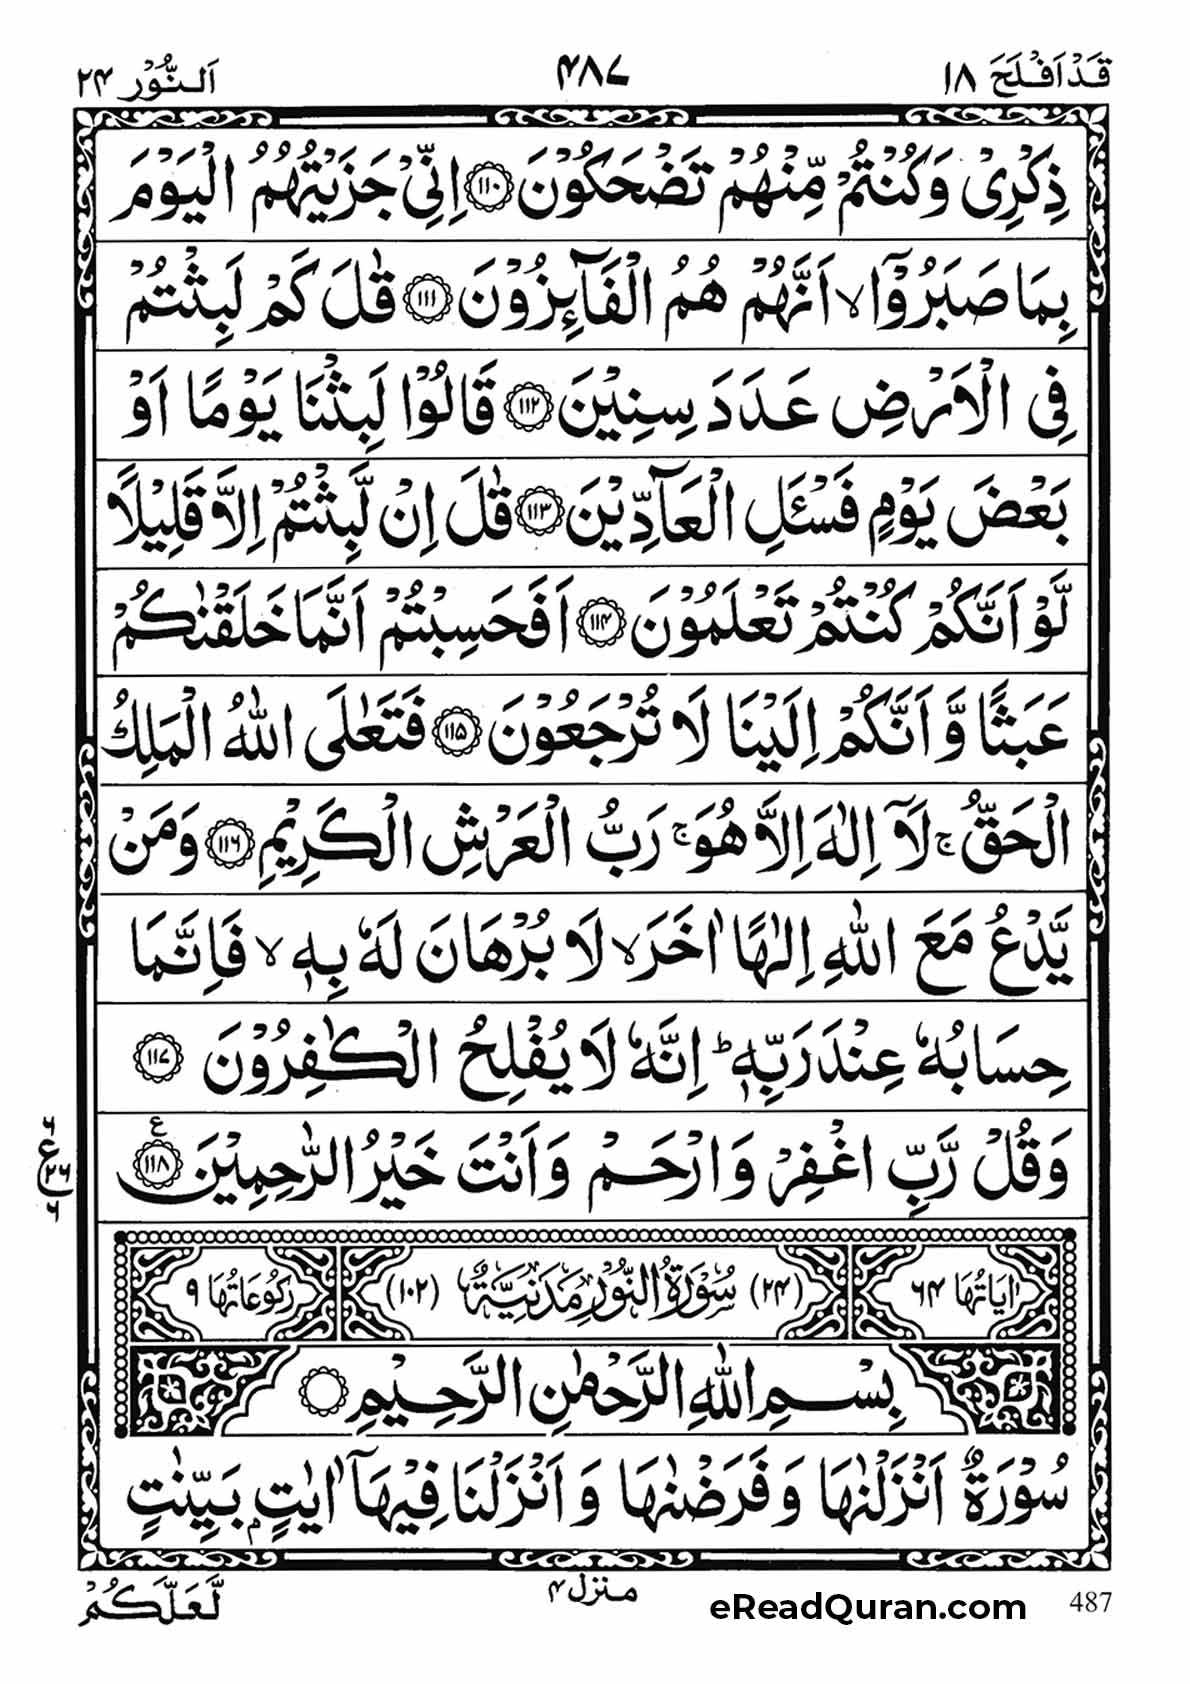 قَدْ اَفْلَحَ ۱۸
۴۸۷
اَلنُّوْر ۲۴
ذِكْرِیْ وَكُنْتُمْ مِّنْهُمْ تَضْحَكُوْنَ ۱۱۰ اِنِّیْ جَزَیْتُهُمُ الْیَوْمَ
بِمَا صَبَرُوْۤا ۙ اَنَّهُمْ هُمُ الْفَآىِٕزُوْنَ ۱۱۱ قٰلَ كَمْ لَبِثْتُمْ
فِی الْاَرْضِ عَدَدَ سِنِیْنَ ۱۱۲ قَالُوْا لَبِثْنَا یَوْمًا اَوْ
بَعْضَ یَوْمٍ فَسْـَٔلِ الْعَآدِّیْنَ ۱۱۳ قٰلَ اِنْ لَّبِثْتُمْ اِلَّا قَلِیْلًا
لَّوْ اَنَّكُمْ كُنْتُمْ تَعْلَمُوْنَ ۱۱۴ اَفَحَسِبْتُمْ اَنَّمَا خَلَقْنٰكُمْ
عَبَثًا وَّ اَنَّكُمْ اِلَیْنَا لَا تُرْجَعُوْنَ ۱۱۵ فَتَعٰلَی اللّٰهُ الْمَلِكُ
الْحَقُّ ۚ لَاۤ اِلٰهَ اِلَّا هُوَ ۚ رَبُّ الْعَرْشِ الْكَرِیْمِ ۱۱۶ وَمَنْ
یَّدْعُ مَعَ اللّٰهِ اِلٰهًا اٰخَرَ ۙ لَا بُرْهَانَ لَهٗ بِهٖ ۙ فَاِنَّمَا
حِسَابُهٗ عِنْدَ رَبِّهٖ ؕ اِنَّهٗ لَا یُفْلِحُ الْكٰفِرُوْنَ ۱۱۷
وَقُلْ رَّبِّ اغْفِرْ وَارْحَمْ وَاَنْتَ خَیْرُ الرّٰحِمِیْنَ ۱۱۸ ع
۶
ع ۲۶
۶
اٰیَاتُهَا ۶۴
(۲۴) سُوْرَةُ النُّوْرِ مَدَنِیَّةٌ (۱۰۲)
رُكُوْعَاتُهَا ۹
بِسْمِ اللّٰهِ الرَّحْمٰنِ الرَّحِیْمِ
سُوْرَةٌ اَنْزَلْنٰهَا وَ فَرَضْنٰهَا وَ اَنْزَلْنَا فِیْهَاۤ اٰیٰتٍۭ بَیِّنٰتٍ
لَّعَلَّكُمْ
منزل ۴
eReadQuran.com
487